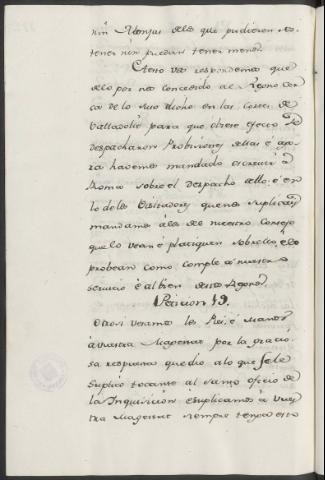 nin Monjas delo que pudieron te
tener nin puedan tener menos.
A esto vos respondemos que
delo por nos concedido al Reyno cer
ca de lo suso dicho en las Cortes de
Valladolid para que obiese efecto se
despacharon Probisiones dellas é ago
ra habemos mandado escreuir á
Roma sobre el despacho dello é en
lo delos Visitadores que nos suplicays
mandamos á los del nuestro Consejo
que lo vean é platiquen sobrello, é lo
probean como cumple á nuestro
servicio é al bien destos Reynos.
Peticion 19.
Otrosi besamos los Pies, é Manos
á vuestra Magestad por la gracio
sa respuesta que dio a lo que se le
suplicó tocante al santo oficio de
la Inquisicion é suplicamos á Vues
tra Magestad siempre tenga esto